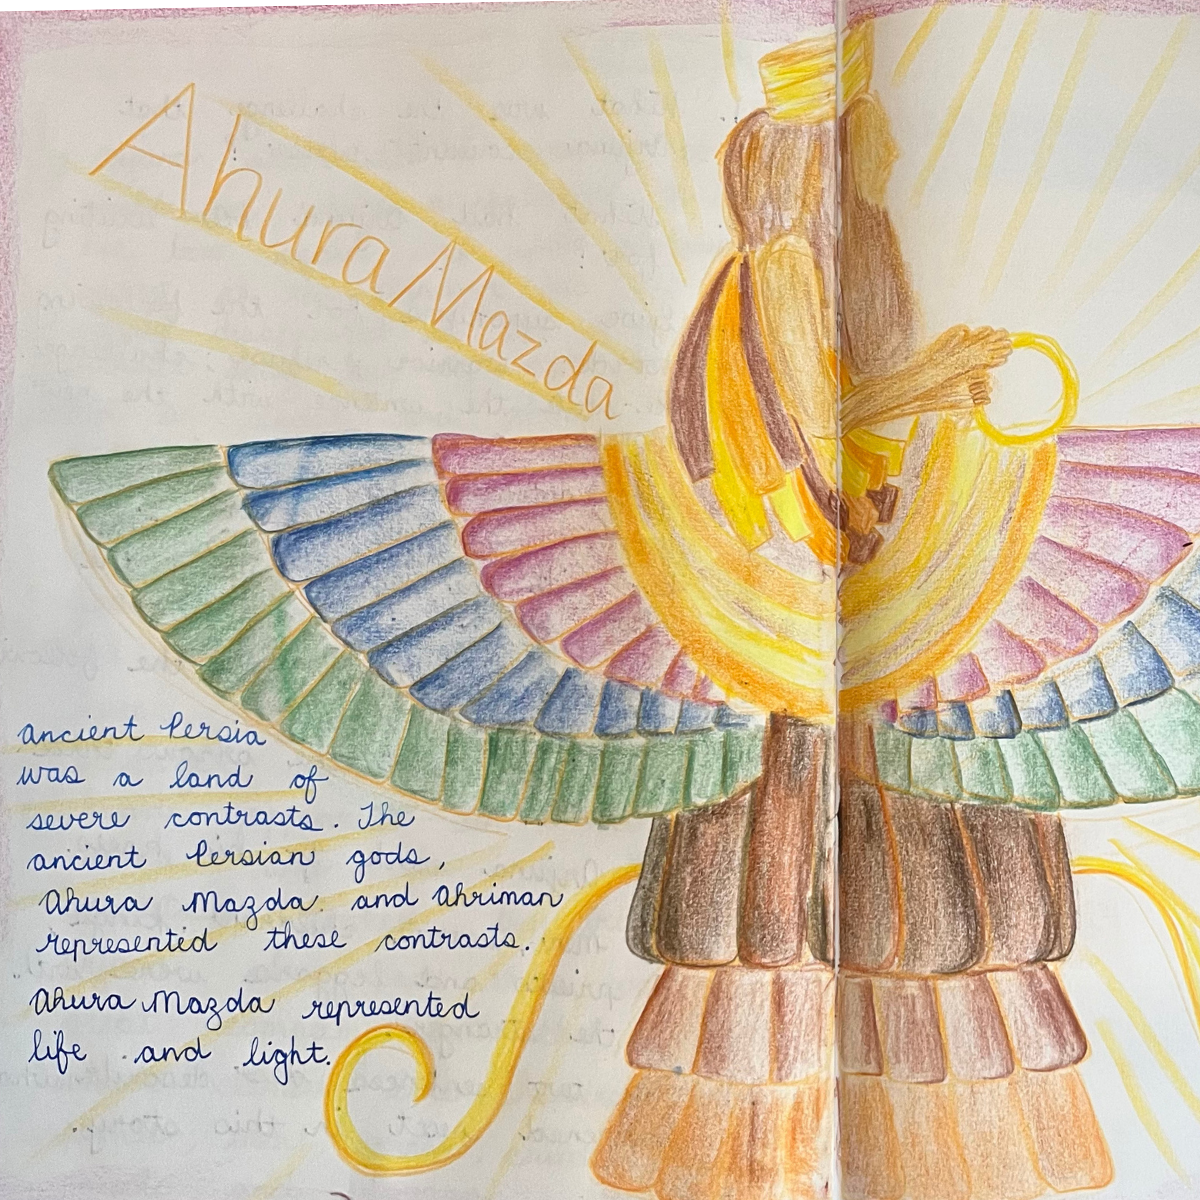 Ahura Mazda
ancient Persia
was a land of
severe contrasts. The
ancient Persian gods,
Ahura Mazda and Ahriman
represented these contrasts.
Ahura Mazda represented
life and light.